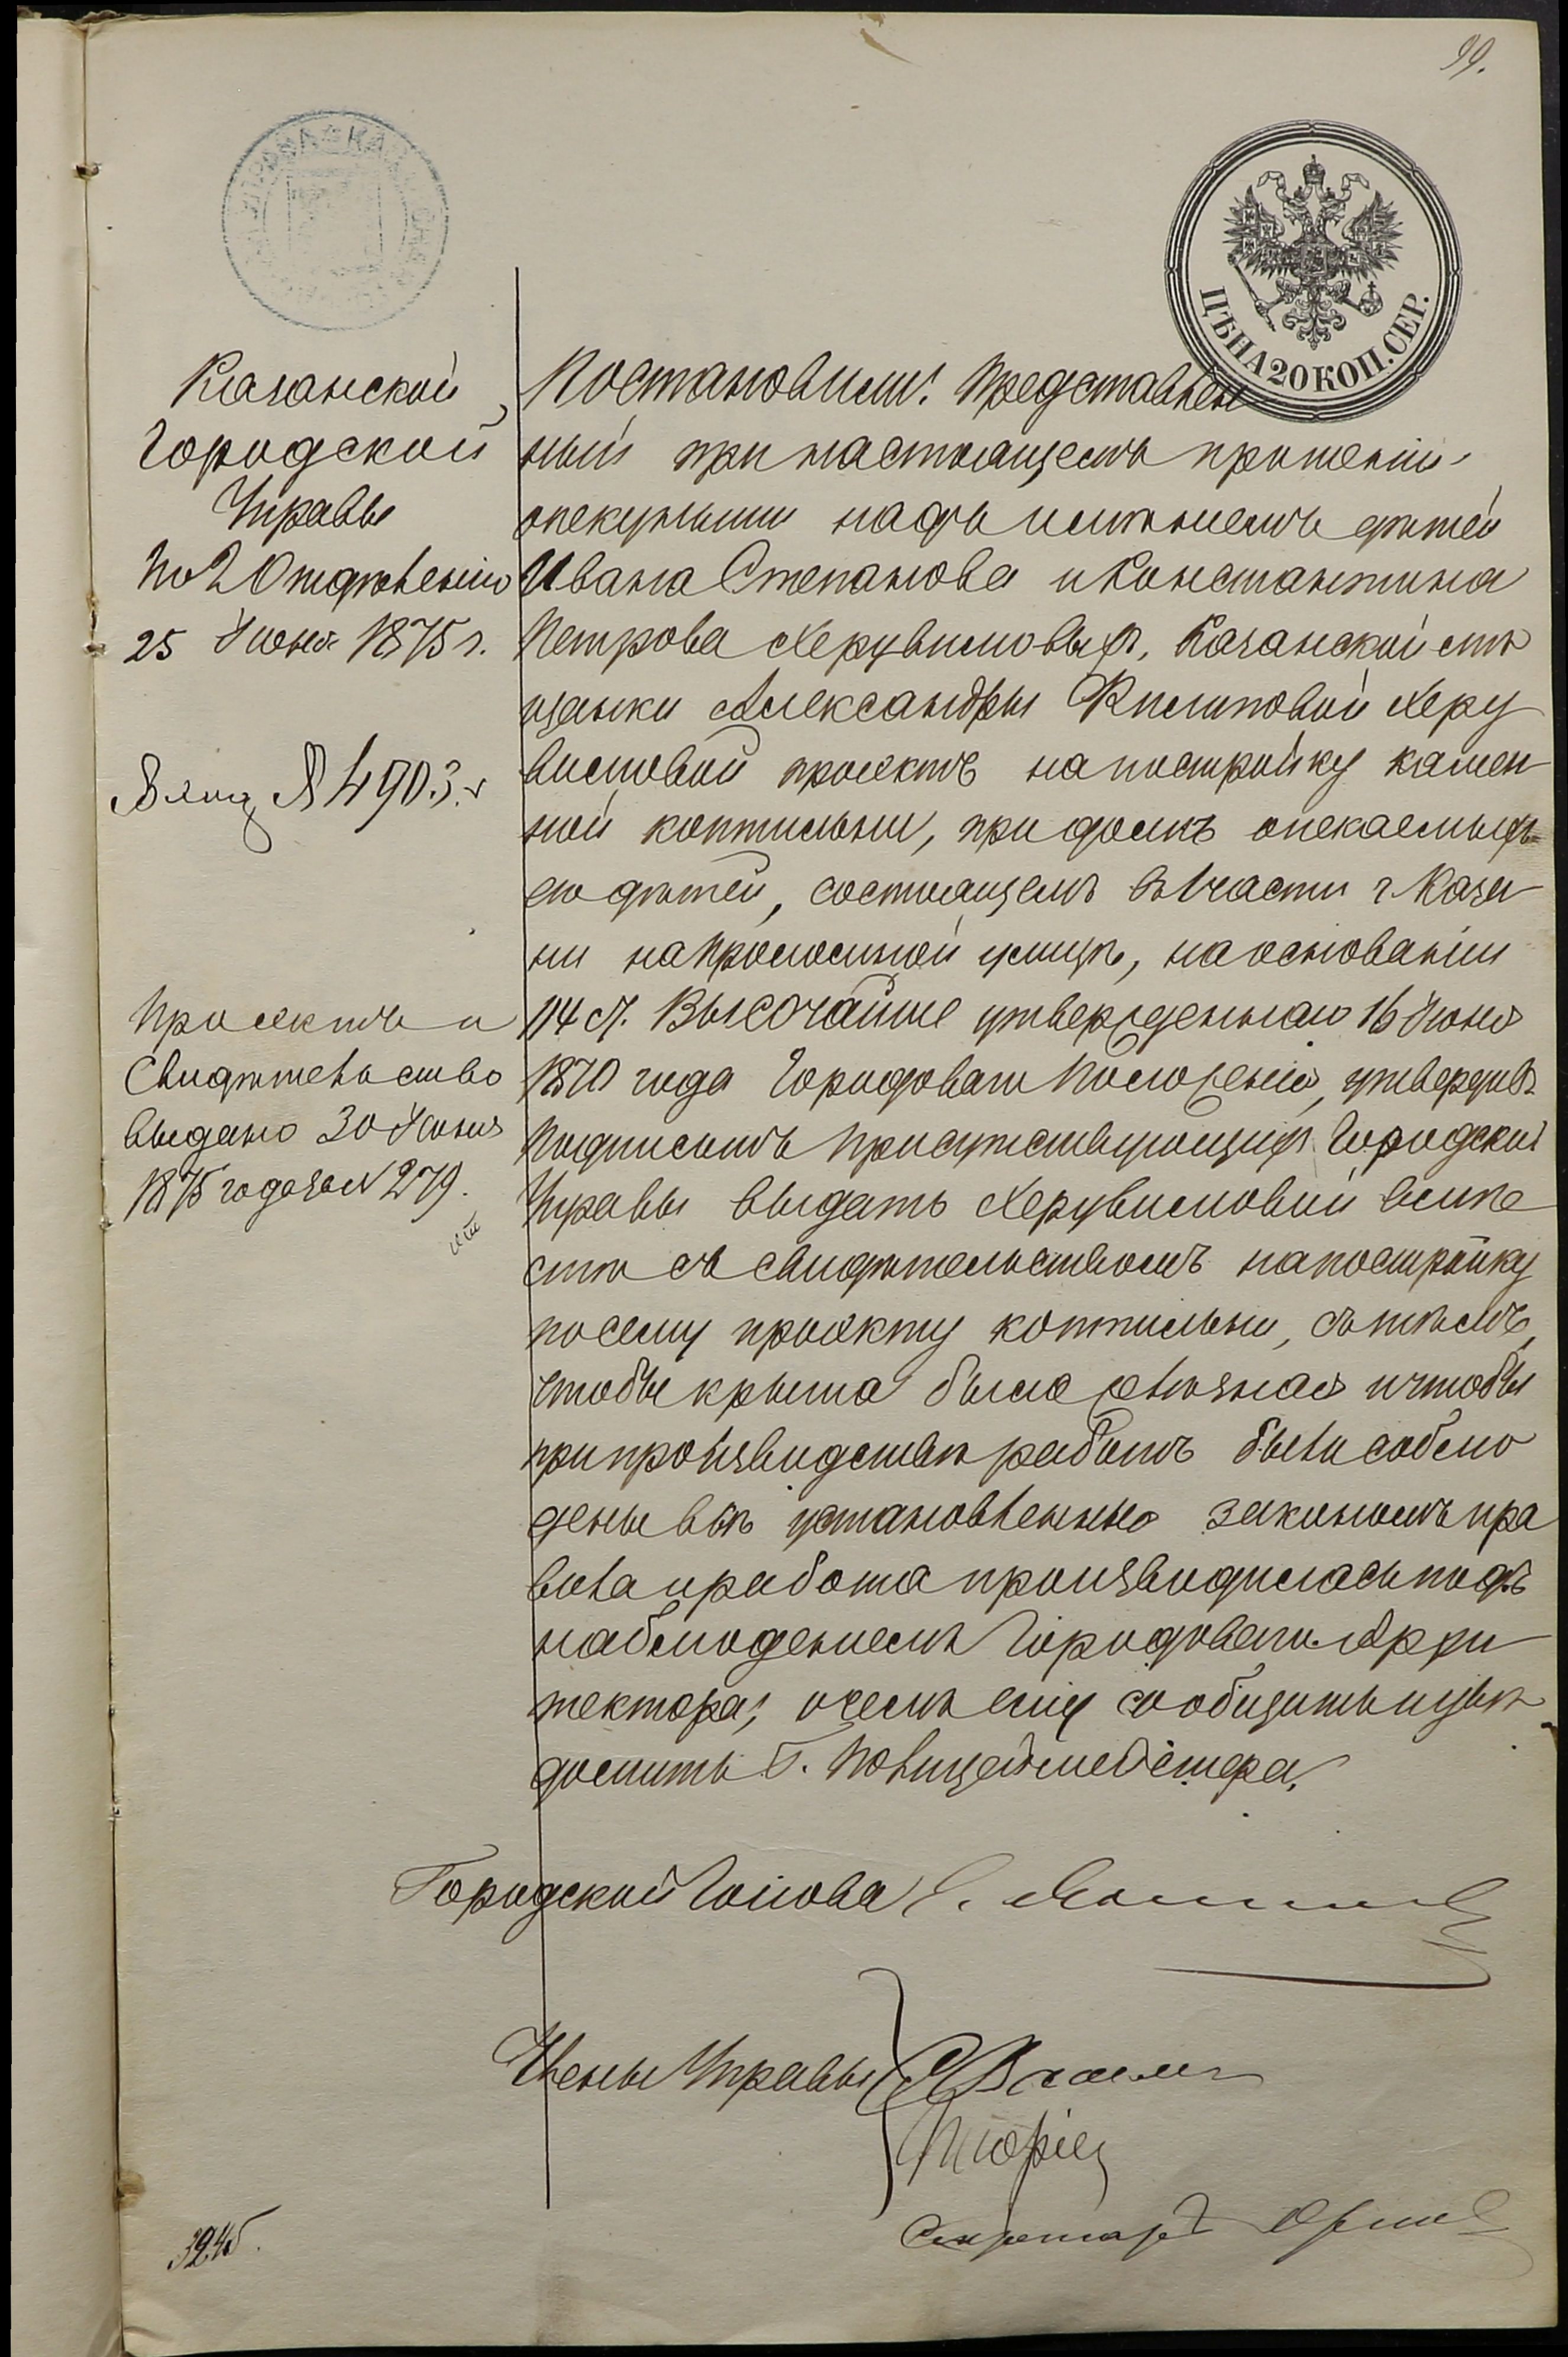 99.
ЦѢНА 20 КОП. СЕР.
Казанской
Городской
Управы
По 2 Отдѣленію
25 Іюня 1875 г.
№ 4903.
Проектъ и
Свидѣтельство
выдано 30 Іюня
1875 года за № 279.
Постановили: Представлен
ный при настоящемъ прошеніи
опекунши надъ имѣніемъ дѣтей
Ивана Степанова и Константина
Петрова Херувимовыхъ, Казанской мѣ
щанки Александры Филиповой Херу
вимовой проектъ на постройку камен
ной коптильни, при домѣ опекаемыхъ
ею дѣтей, состоящемъ въ 1 части г. Каза
ни на Проломной улицѣ, на основаніи
114 ст. Высочайше утвержденнаго 16 Іюня
1870 года Городоваго Положенія, утвердивъ
подписомъ присутствующихъ Городской
Управы выдать Херувимовой вмѣ
стѣ съ свидѣтельствомъ на постройку
по сему проекту коптильни, съ тѣмъ,
чтобы крыша была желѣзная и чтобы
при производствѣ работъ были соблю
дены всѣ установленныя закономъ пра
вила и работа производилась подъ
наблюденіемъ Городоваго Архи
тектора; о чемъ ему сообщить и увѣ
домить Г. Полицеймейстера.
Городской Голова
Члены Управы
Секретарь
3245.